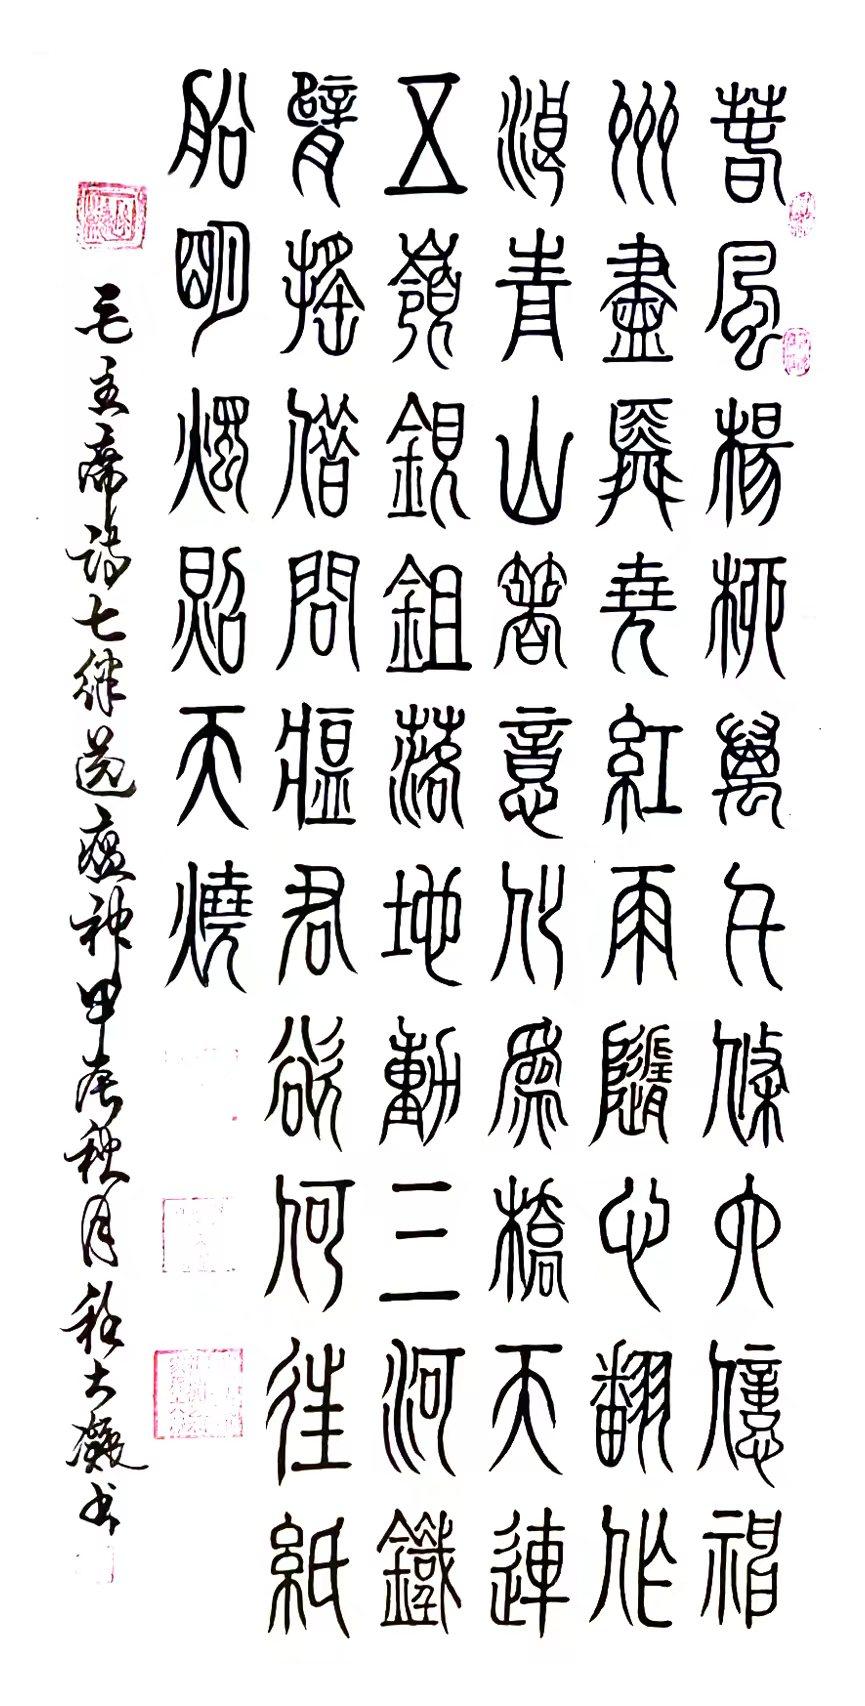 春風楊柳萬千條六億神
州盡舜堯紅雨隨心翻作
浪青山著意化為橋天連
五嶺銀鉏落地動三河鐵
臂搖借問瘟君欲何往紙
船明燭照天燒
毛主席詩七律送瘟神甲辰秋月程大书